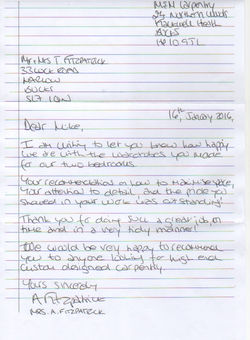 M&M Carpentry
Northern Woods
Flackwell Heath
BUCKS
HP10 9JL
Mr & Mrs T FITZPATRICK
33 LOCK ROAD
MARLOW
BUCKS
SL7 1QW
16th January 2016,
Dear Mike,
I am writing to let you know how happy
we are with the wardrobes you made
for our two bedrooms.
Your recommendations on how to maximise space,
your attention to detail and the pride you
showed in your work was outstanding!
Thank you for doing such a great job, on
time and in a very tidy manner!
We would be very happy to recommend
you to anyone looking for high end
custom designed carpentry.
Yours sincerely
A Fitzpatrick
MRS. A. FITZPATRICK